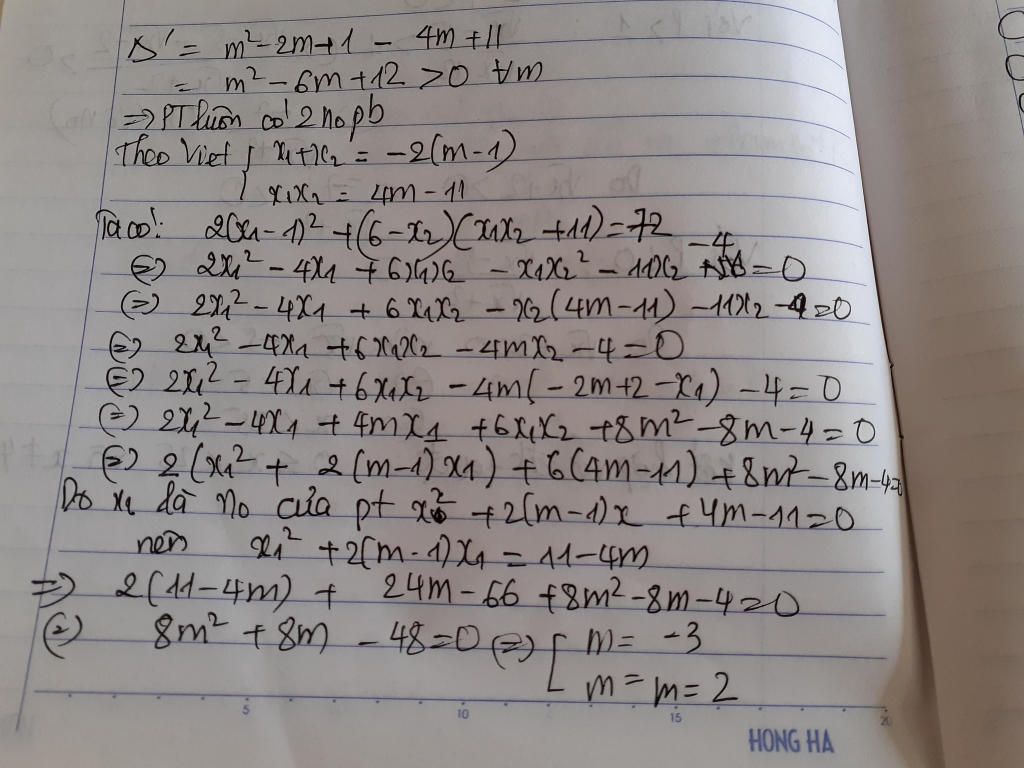 Δ' = m² - 2m + 1 - 4m + 11
= m² - 6m + 12 > 0 ∀m
=> PT luôn có 2 no pb
Theo Viet { x₁+x₂ = -2(m-1)
x₁x₂ = 4m - 11
Ta có: 2(x₁ - 1)² + (6 - x₂)(x₁x₂ + 11) = 72
(=) 2x₁² - 4x₁ + 6x₁x₂ - x₁x₂² - 11x₂ - 4 = 0
(=) 2x₁² - 4x₁ + 6x₁x₂ - x₂(4m - 11) - 11x₂ - 4 = 0
(=) 2x₁² - 4x₁ + 6x₁x₂ - 4mx₂ - 4 = 0
(=) 2x₁² - 4x₁ + 6x₁x₂ - 4m(-2m + 2 - x₁) - 4 = 0
(=) 2x₁² - 4x₁ + 4mx₁ + 6x₁x₂ + 8m² - 8m - 4 = 0
(=) 2(x₁² + 2(m-1)x₁) + 6(4m - 11) + 8m² - 8m - 4 = 0
Do x₁ là no của pt x² + 2(m-1)x + 4m - 11 = 0
nên x₁² + 2(m-1)x₁ = 11 - 4m
=> 2(11 - 4m) + 24m - 66 + 8m² - 8m - 4 = 0
(=) 8m² + 8m - 48 = 0 (=) [ m = -3
m = m = 2
5 10 15 20
HONG HA